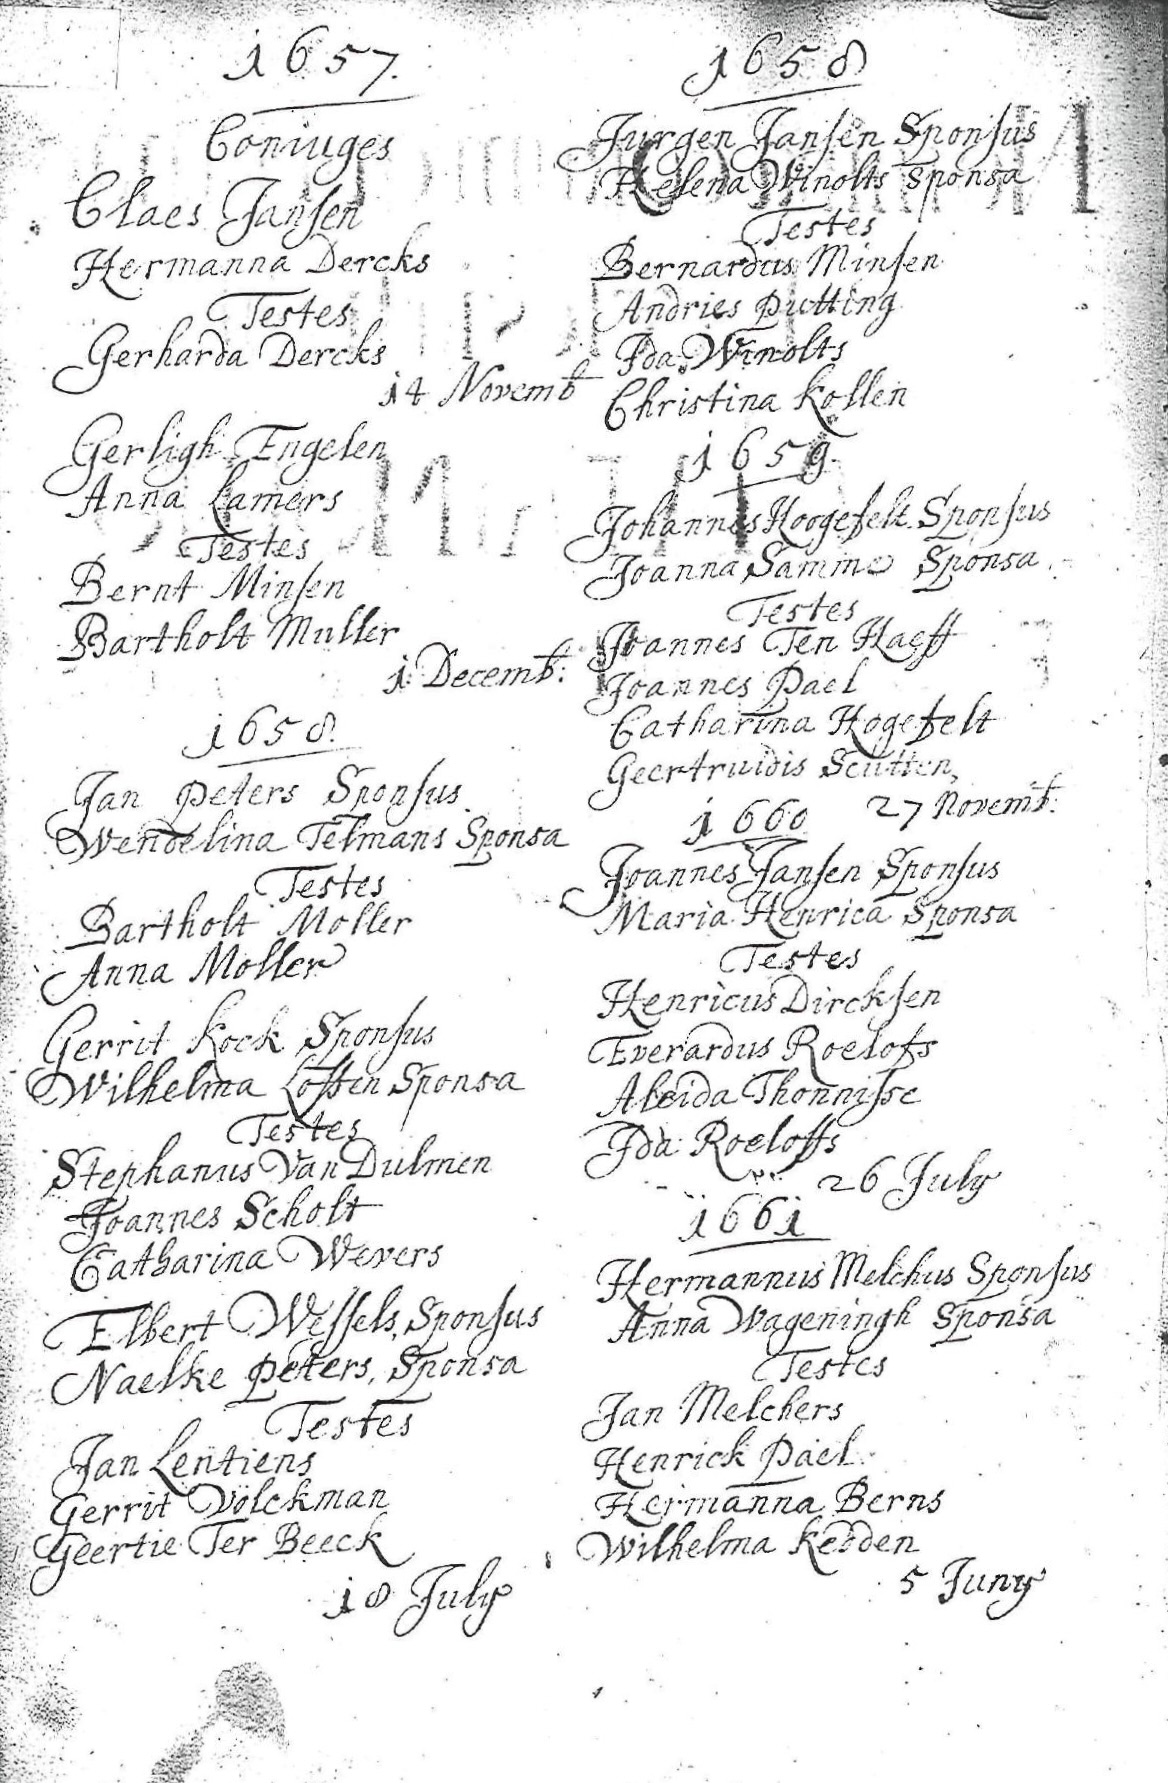 1657.
Coniuges
Claes Jansen
Hermanna Dercks
Testes
Gerharda Dercks
14 Novemb
Gerligh Engelen
Anna Lamers
Testes
Bernt Minsen
Bartholt Muller
1 Decemb:
1658.
Jan peters Sponsus.
Wendelina Telmans Sponsa
Testes
Bartholt Moller
Anna Moller
Gerrit Kock Sponsus
Wilhelma Lossen Sponsa
Testes
Stephanus Van Dulmen
Joannes Scholt
Catharina Wevers
Elbert Wessels, Sponsus
Naelke peters, Sponsa
Testes
Jan Lentiens
Gerrit Volckman
Geertie Ter Beeck
18 July
1658
Jurgen Jansen Sponsus
Helena Winolts Sponsa
Testes
Bernardus Minsen
Andries putting
Ida Winolts
Christina Kollen
1659.
Johannes Hoogefelt Sponsus
Joanna Samme Sponsa.
Testes
Joannes Ten Haeff
Joannes Pael
Catharina Hogefelt
Geertruidis Scutten,
27 Novemb:
1660
Joannes Jansen Sponsus
Maria Henrica Sponsa
Testes
Henricus Dircksen
Everardus Roelofs
Aleida Thonnisse
Ida Roeloffs
26 July
1661
Hermannus Melchus Sponsus
Anna Wageningh Sponsa
Testes
Jan Melchers
Henrick Pael
Hermanna Berns
Wilhelma Kedden
5 Juny